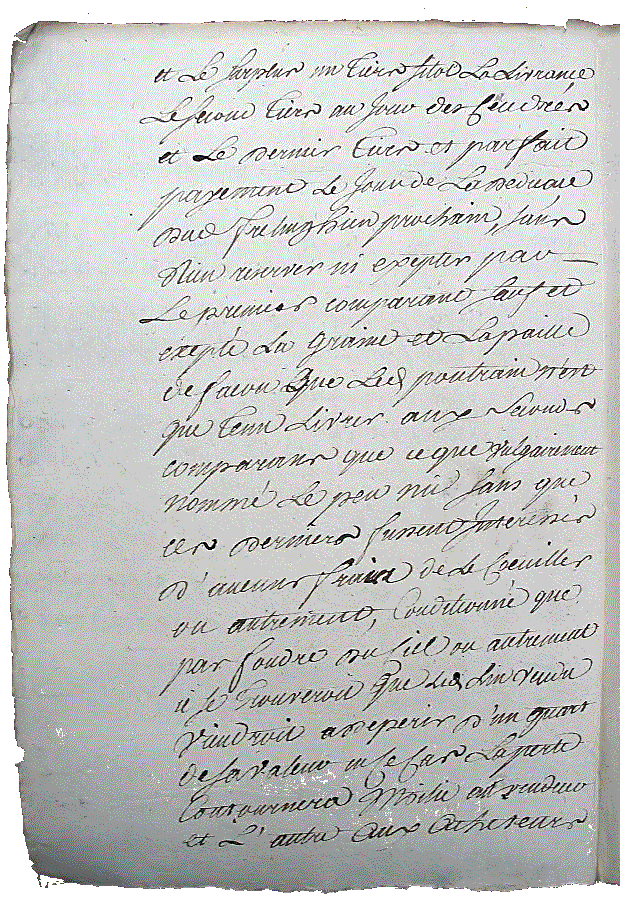 et Le surplus un tiers sitot La Livrance
Le second tiers au Jour des Cendres
et Le dernier tiers et parfait
payement Le Jour de La deduase
dud frelinghien prochain, sans
Rien reserver ni exepter par
Le premier comparant sauf et
exepté La graine et Lapaille
de facon que Led poutrain n'est
que tenu Livrer aux seconds
comparans que ce que vulgairement
nommé Le peu nu sans que
ces derniers fussent Interessés
d'aucuns frais de Le Coeuiller
ou autrement, Conditionné que
par foudre du Ciel ou autrement
il se trouveroit que Led Lin vendu
viendroit adeperir d'un quart
de savaleur en se cas Laperte
Contournera Moitié au vendeur
et L'autre aux acheteurs